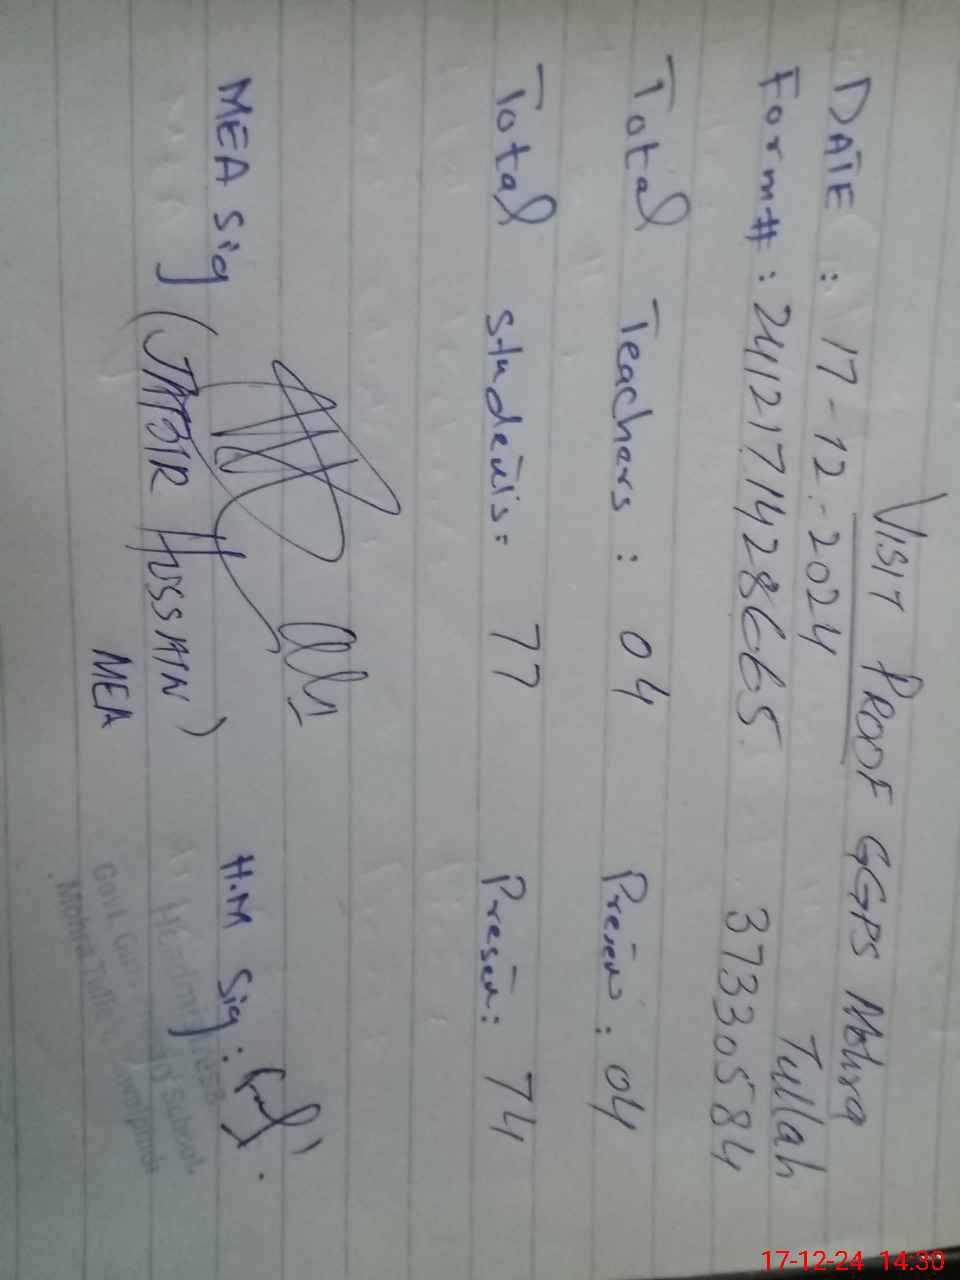 VISIT PROOF GGPS Mohra Tullah
DATE : 17-12-2024
Form# : 241217142866S 37330584
Total Teachers : 04 Present : 04
Total students= 77 Present: 74
MEA Sig H.M Sig :
(JABIR HUSSAIN)
MEA
Headmistress
Govt. Girls School
Mohra Tullah
17-12-24 14:30